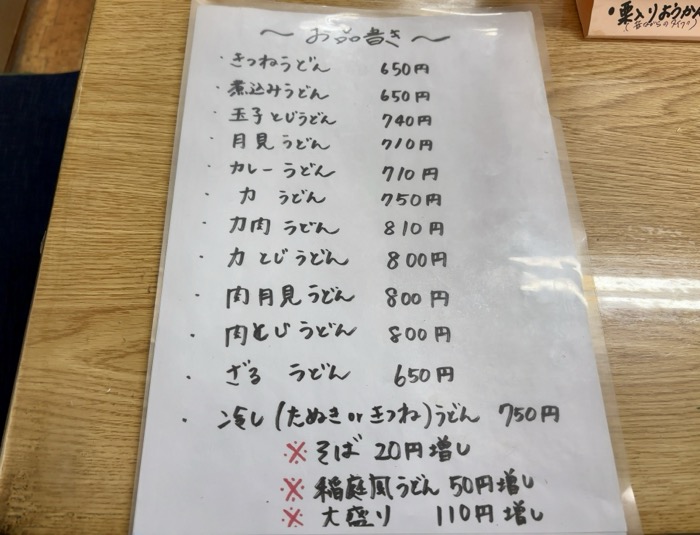 〜 お品書き 〜
・きつねうどん 650円
・煮込みうどん 650円
・玉子とじうどん 740円
・月見うどん 710円
・カレーうどん 710円
・力 うどん 750円
・力肉 うどん 810円
・力 とじうどん 800円
・肉月見うどん 800円
・肉とじうどん 800円
・ざる うどん 650円
・冷し(たぬき or きつね)うどん 750円
※そば 20円増し
※稲庭風うどん 50円増し
※大盛り 110円増し
・栗入りようかん